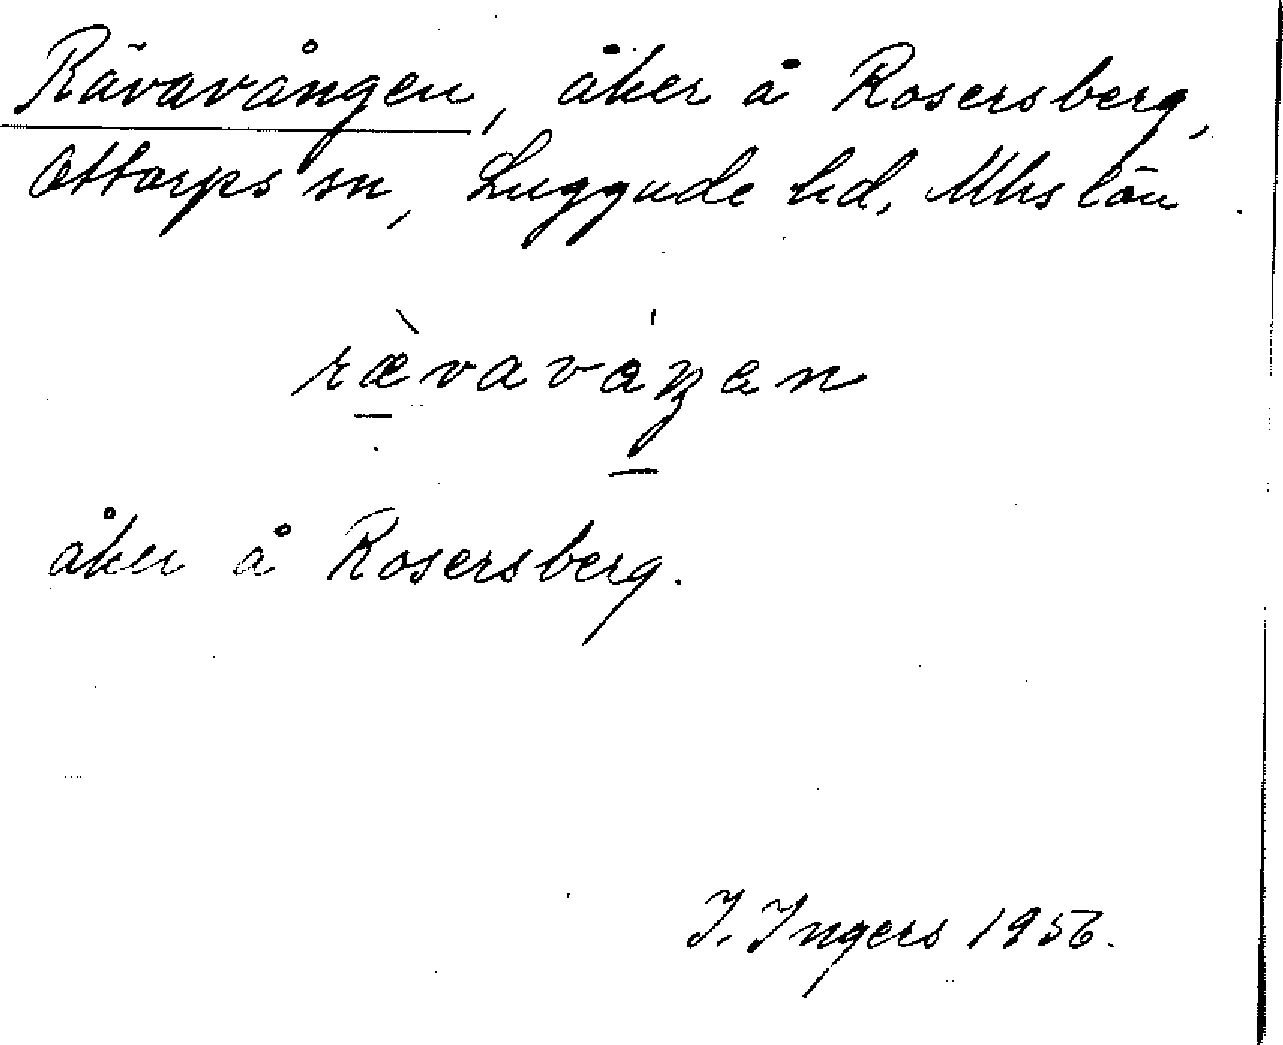 Rävavången, åker å Rosersberg,
Ottarps sn, Luggude hd, Mhs län.
rævavaŋen
åker å Rosersberg.
I. Ingers 1956.